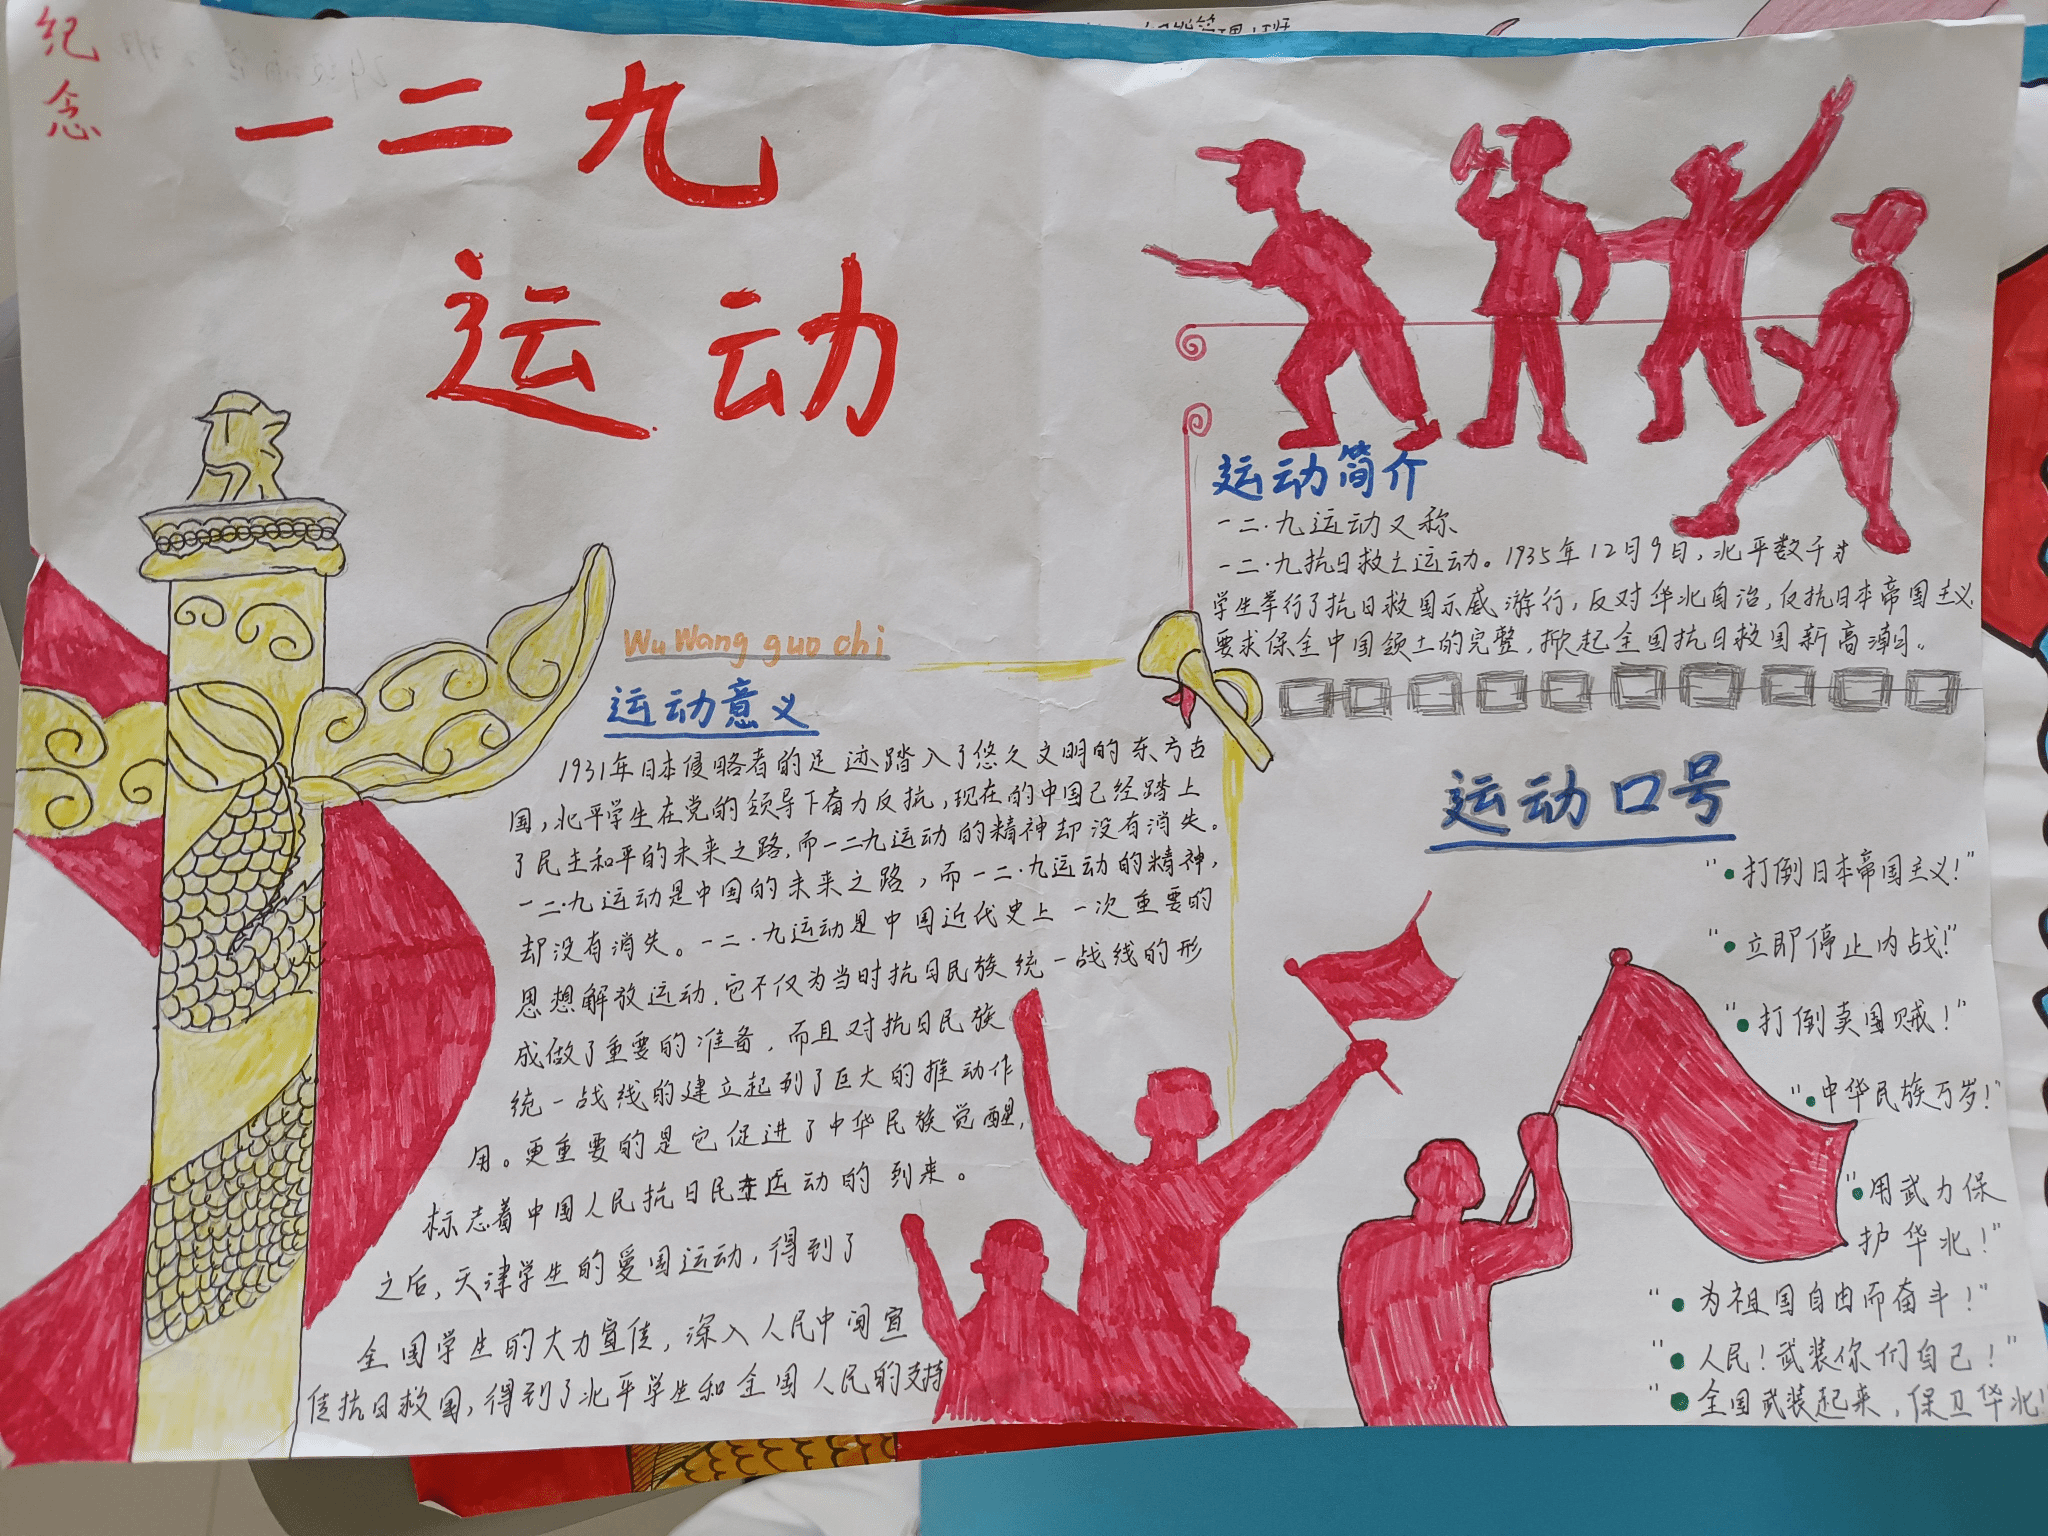 纪念
一二九
运动
Wu Wang guo chi
运动意义
1931年日本侵略者的足迹踏入了悠久文明的东方古
国,北平学生在党的领导下奋力反抗,现在的中国已经踏上
了民主和平的未来之路,而一二九运动的精神却没有消失。
一二·九运动是中国的未来之路,而一二·九运动的精神,
却没有消失。一二·九运动是中国近代史上一次重要的
思想解放运动,它不仅为当时抗日民族统一战线的形
成做了重要的准备,而且对抗日民族
统一战线的建立起到了巨大的推动作
用。更重要的是它促进了中华民族觉醒,
标志着中国人民抗日民主运动的到来。
之后,天津学生的爱国运动,得到了
全国学生的大力宣传,深入人民中间宣
传抗日救国,得到了北平学生和全国人民的支持
运动简介
一二·九运动又称
一二·九抗日救亡运动。1935年12月9日,北平数千
学生举行了抗日救国示威游行,反对华北自治,反抗日本帝国主义
要求保全中国领土的完整,掀起全国抗日救国新高潮。
运动口号
"·打倒日本帝国主义!"
"·立即停止内战!"
"·打倒卖国贼!"
"·中华民族万岁!"
"·用武力保
护华北!"
"·为祖国自由而奋斗!"
"·人民!武装你们自己!"
"·全国武装起来,保卫华北!